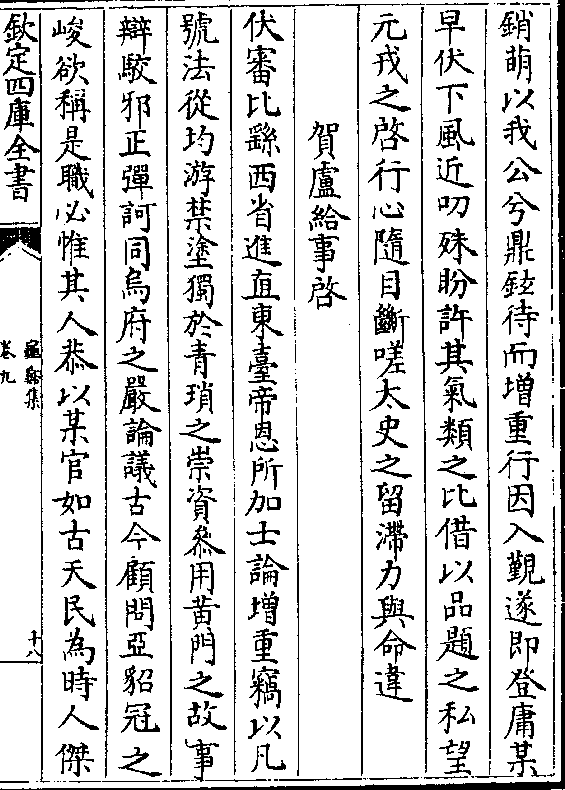 銷萌以我公兮鼎鉉待而增重行因入覲遂即登庸某
早伏下風近叨殊盼許其氣類之比借以品題之私望
元戎之啓行心隨目斷嗟太史之留滯力與命違
賀盧給事啓
伏審比繇西省進直東臺帝恩所加士論增重竊以凡
號法從均游禁塗獨於青瑣之崇資叅用黄門之故事
辯駮邪正彈訶同烏府之嚴論議古今顧問亞貂冠之
峻欲稱是職必惟其人恭以某官如古天民為時人傑
欽定四庫全書
龜谿集
卷九
十八